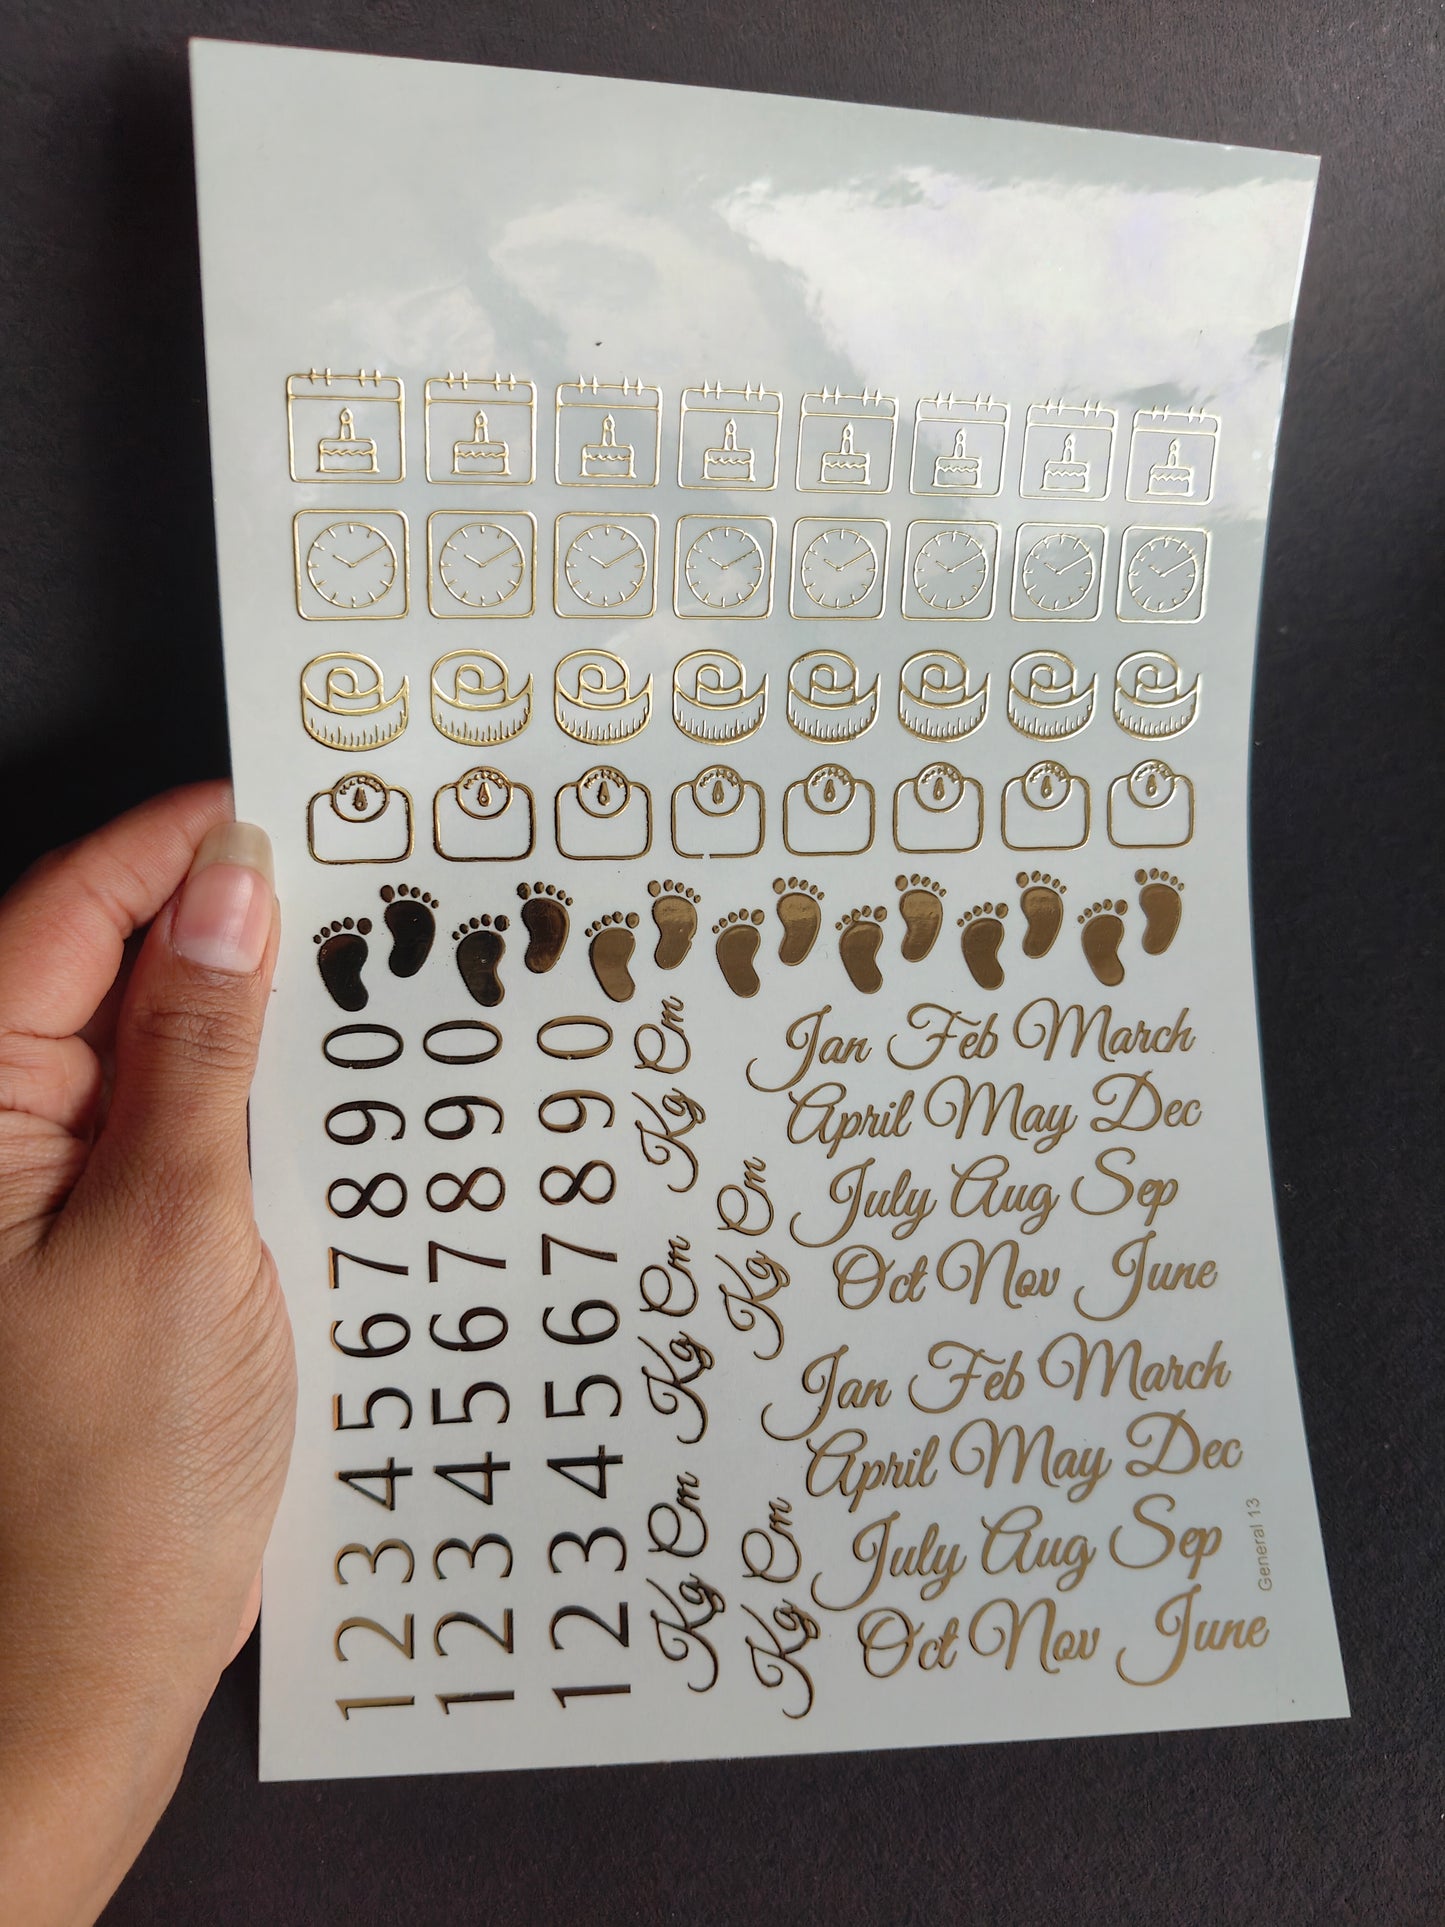 1 2 3 4 5 6 7 8 9 0
1 2 3 4 5 6 7 8 9 0
1 2 3 4 5 6 7 8 9 0
Kg Cm
Kg Cm
Kg Cm
Kg Cm
Kg Cm
Jan Feb March
April May Dec
July Aug Sep
Oct Nov June
Jan Feb March
April May Dec
July Aug Sep
Oct Nov June
General 13